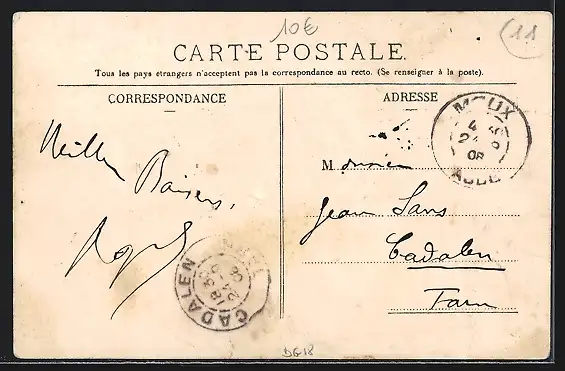 10€
11
CARTE POSTALE.
Tous les pays étrangers n'acceptent pas la correspondance au recto. (Se renseigner à la poste).
CORRESPONDANCE
ADRESSE
MOUX
AUDE
M
Jean Sans
Cadalen
Tarn
Baisers,
CADALEN
TARN
DG18